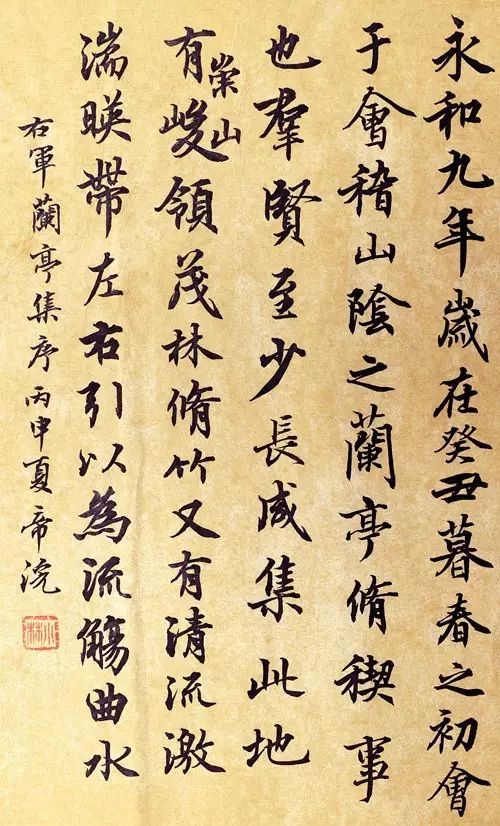 永和九年歲在癸丑暮春之初會
于會稽山陰之蘭亭脩稧事
也羣賢至少長咸集此地
有崇山峻領茂林脩竹又有清流激
湍暎帶左右引以為流觴曲水
右軍蘭亭集序丙申夏帝浣